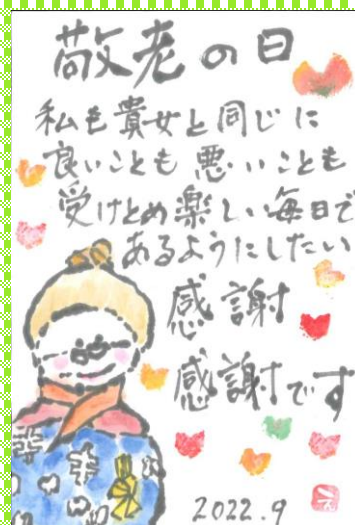 敬老の日
私も貴女と同じに
良いことも悪いことも
受けとめ楽しい毎日で
あるようにしたい
感謝
感謝です
2022.9